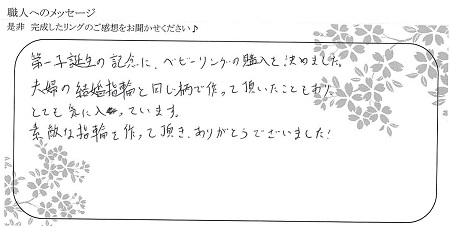 職人へのメッセージ
是非 完成したリングのご感想をお聞かせください♪
第一子誕生の記念に、ベビーリングの購入を決めました。
夫婦の結婚指輪と同じ柄で作って頂いたこともあり、
とても気に入っています。
素敵な指輪を作って頂き、ありがとうございました!